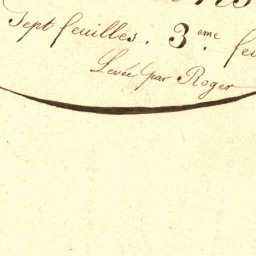 Sept feuilles. 3.eme
Levée par Roger